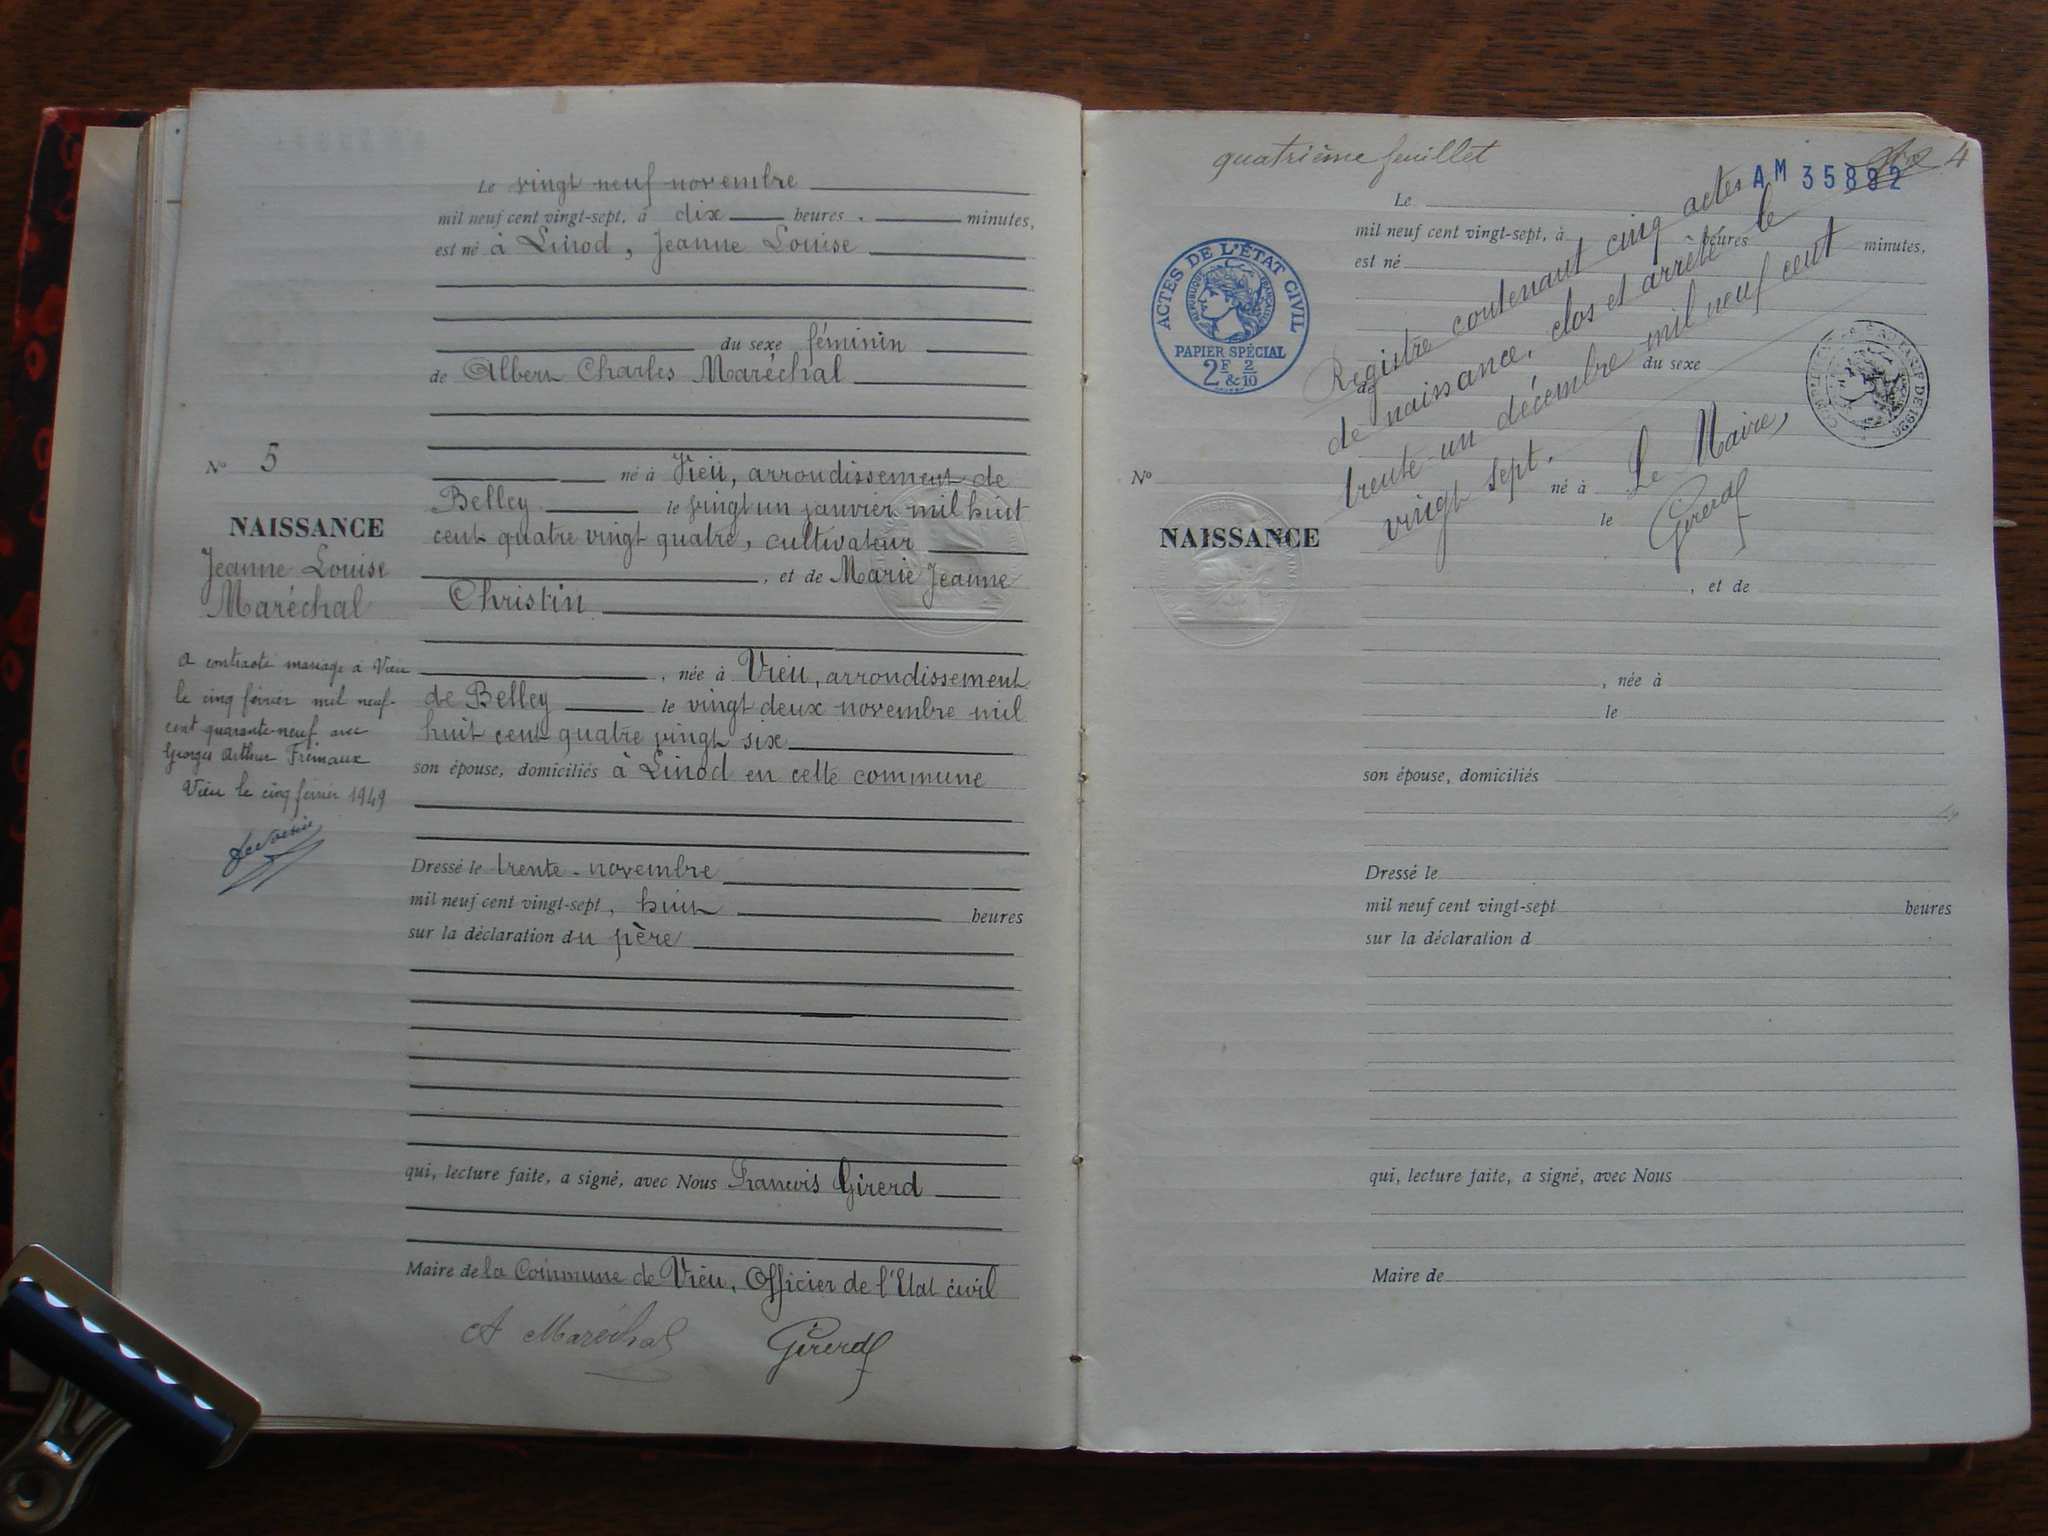 Le vingt neuf novembre
mil neuf cent vingt-sept, à dix heures minutes,
est né à Linod, Jeanne Louise
du sexe féminin
de Albert Charles Maréchal
né à Vieu, arrondissement de
Belley le vingt un janvier mil huit
cent quatre vingt quatre, cultivateur
, et de Marie Jeanne
Christin
, née à Vieu, arrondissement
de Belley le vingt deux novembre mil
huit cent quatre vingt six
son épouse, domiciliés à Linod en cette commune
Dressé le trente novembre
mil neuf cent vingt-sept, huit heures
sur la déclaration du père
qui, lecture faite, a signé, avec Nous François Girerd
Maire de la Commune de Vieu, Officier de l'Etat civil
A Maréchal Girerd
No 5
NAISSANCE
Jeanne Louise
Maréchal
a contracté mariage à Vieu
le cinq février mil neuf-
cent quarante-neuf avec
Georges Arthur Freinaux
Vieu le cinq février 1949
quatrième feuillet
4
AM 35892
ACTES DE L'ÉTAT CIVIL
RÉPUBLIQUE FRANÇAISE
PAPIER SPÉCIAL
2F & 2/10
Registre contenant cinq actes
de naissance, clos et arrêté le
trente-un décembre mil neuf cent
vingt sept.
Le Maire,
Girerd
DE 1920
Le
mil neuf cent vingt-sept, à heures minutes,
est né
du sexe
de
No
NAISSANCE
né à
le
, et de
, née à
le
son épouse, domiciliés
Dressé le
mil neuf cent vingt-sept heures
sur la déclaration d
qui, lecture faite, a signé, avec Nous
Maire de